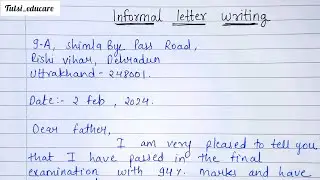 Tulsi_educare
Informal letter writing
9-A, shimla Bye Pass Road,
Rishi vihar, Dehradun
Uttrakhand - 248001.
Date:- 2 feb, 2024.
Dear father,
I am very pleased to tell you
that I have passed in the final
examination with 94%. marks and have